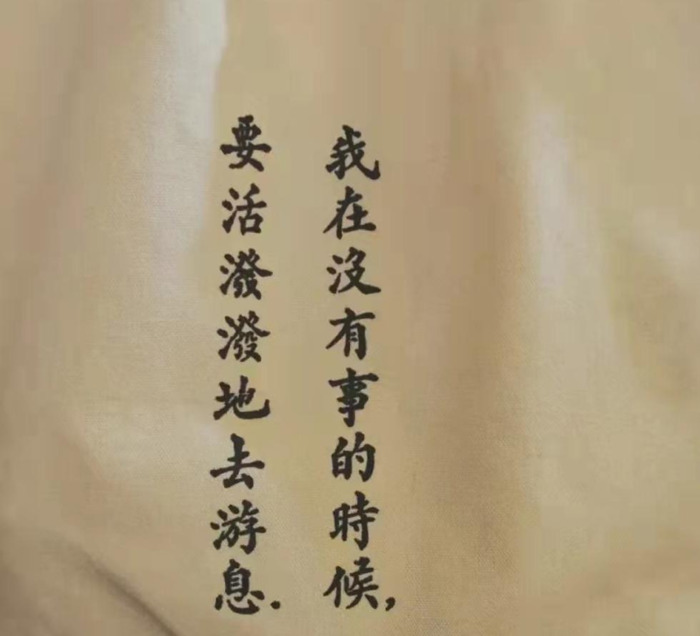 我在沒有事的時候,
要活潑潑地去游息.